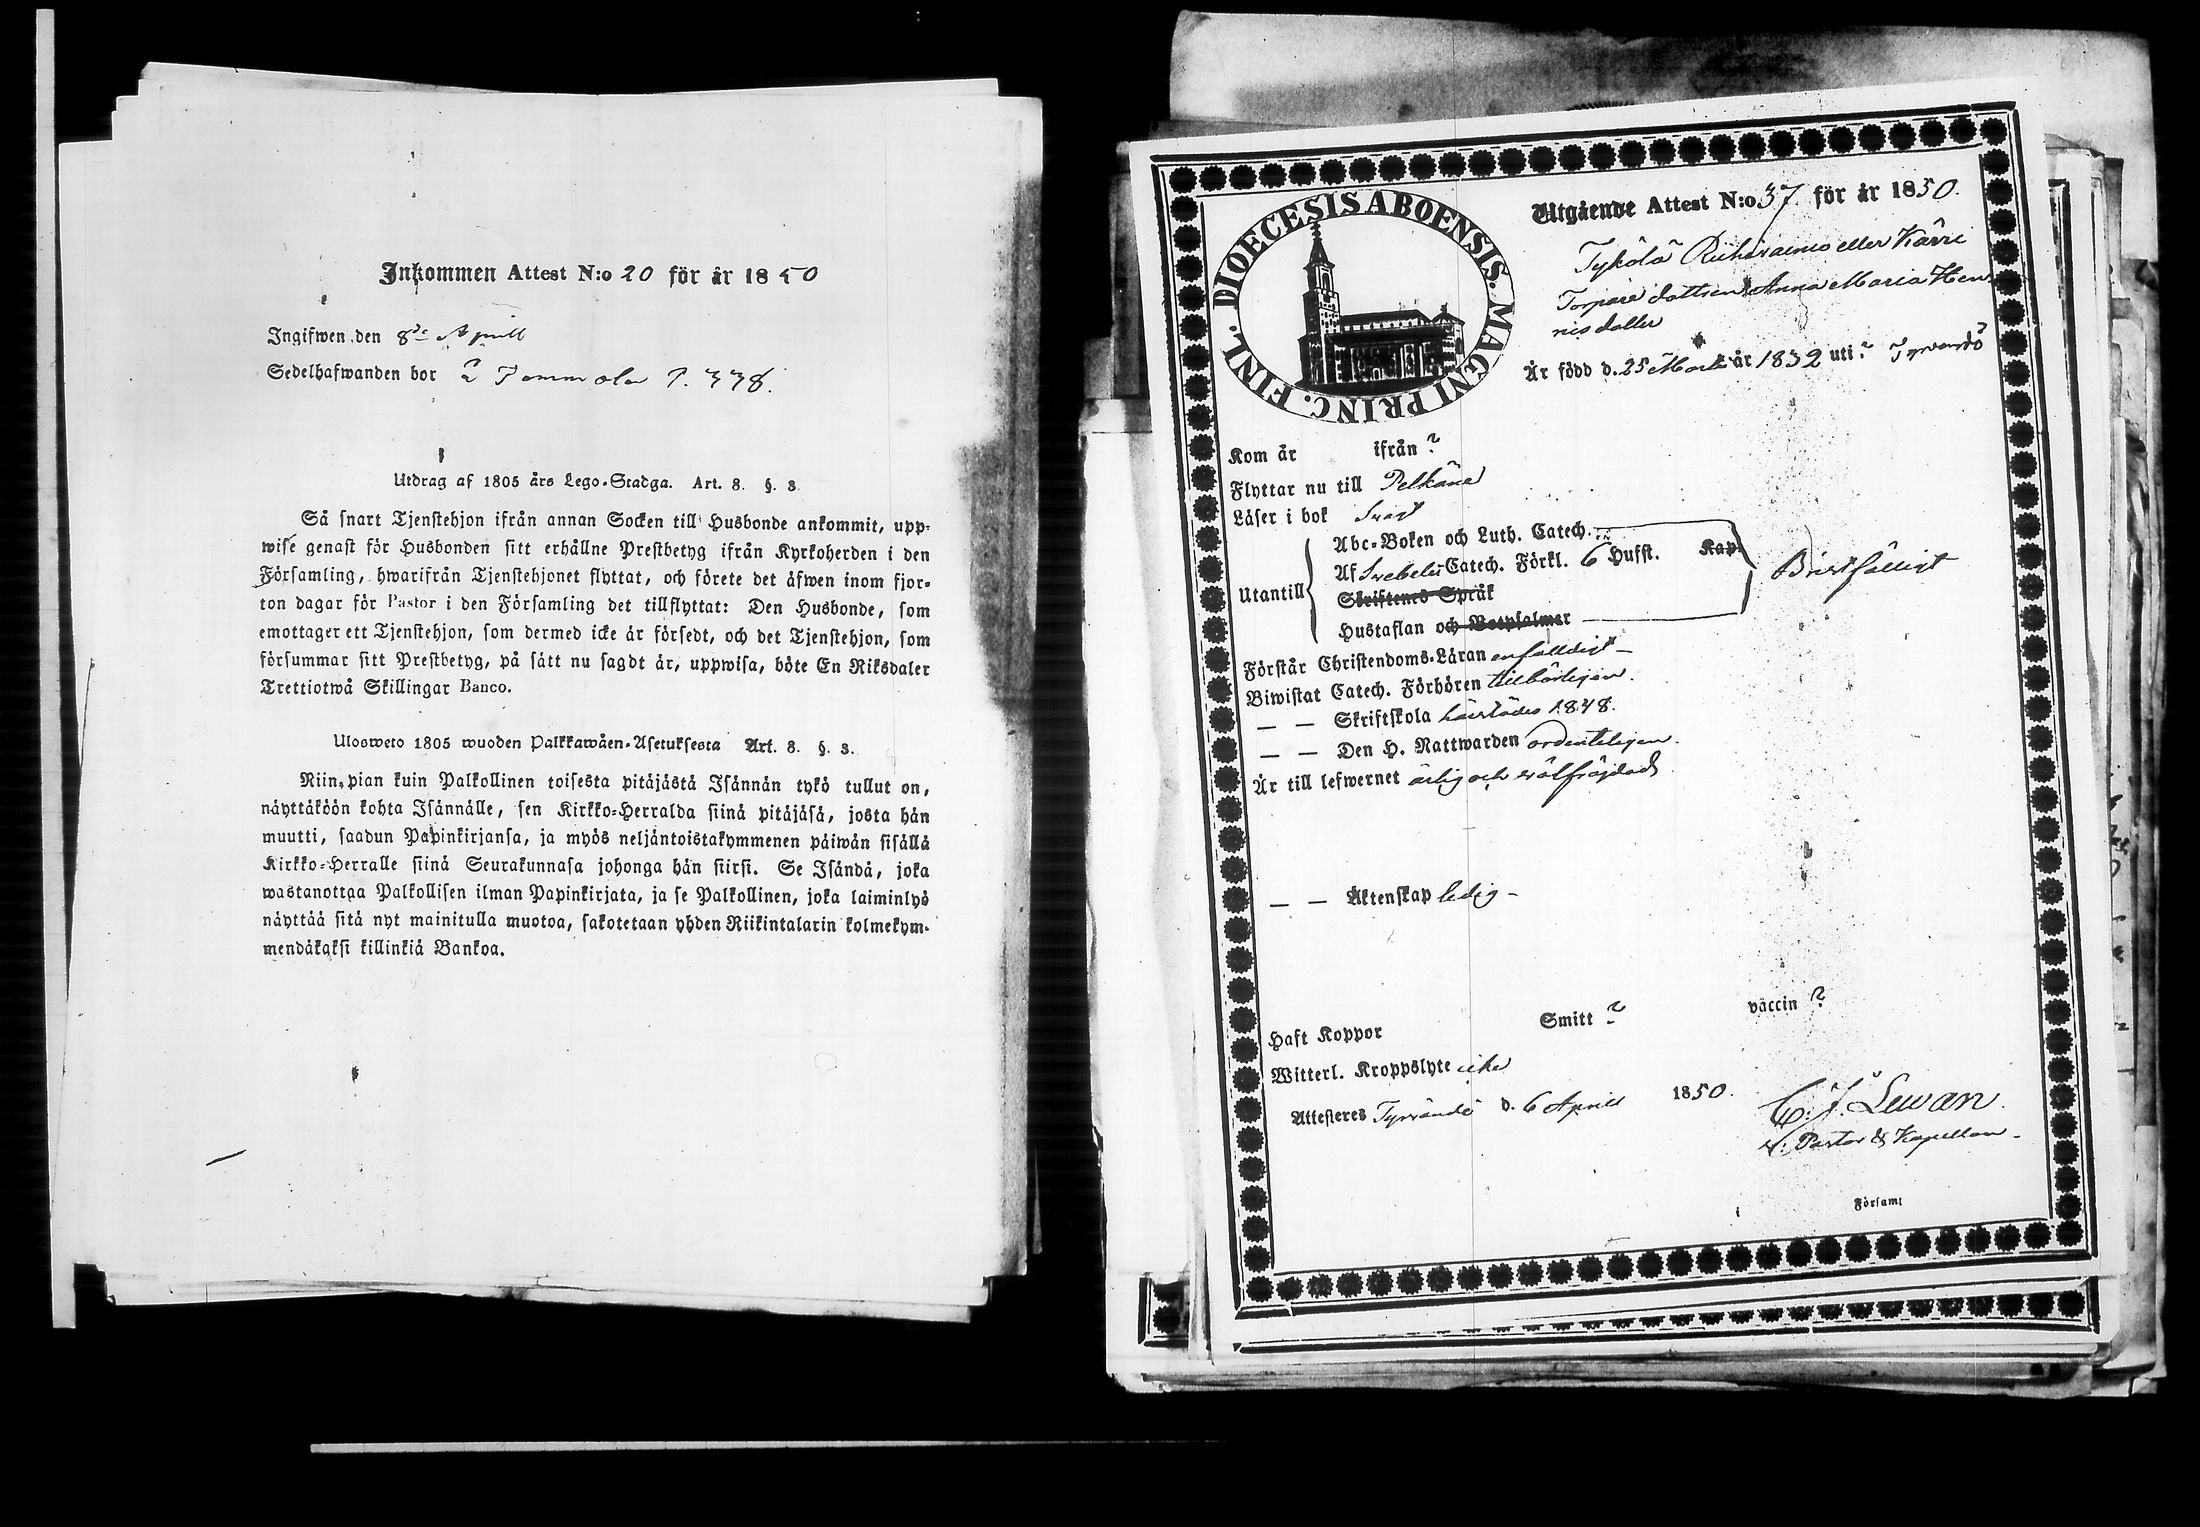 Inkommen Attest N:o 20 för år 1850
Ingifwen den 8de April
Sedelhafwanden bor i Tommola P. 338.
Utdrag af 1805 års Lego-Stadga. Art. 8. §. 3.
Så snart Tjenstehjon ifrån annan Socken till Husbonde ankommit, upp-
wise genast för Husbonden sitt erhållne Prestbetyg ifrån Kyrkoherden i den
Församling, hwarifrån Tjenstehjonet flyttat, och förete det äfwen inom fjor-
ton dagar för Pastor i den Församling det tillflyttat: Den Husbonde, som
emottager ett Tjenstehjon, som dermed icke är försedt, och det Tjenstehjon, som
försummar sitt Prestbetyg, på sätt nu sagdt är, uppwisa, böte En Riksdaler
Trettiotwå Skillingar Banco.
Ulosweto 1805 wuoden Palkkawäen-Asetuksesta Art. 8. §. 3.
Niin pian kuin Palkollinen toisesta pitäjästä Isännän tykö tullut on,
näyttäköön kohta Isännälle, sen Kirkko-Herralda siinä pitäjäsä, josta hän
muutti, saadun Papinkirjansa, ja myös neljäntoistakymmenen päiwän sisällä
Kirkko-Herralle siinä Seurakunnasa johonga hän siirsi. Se Isändä, joka
wastanottaa Palkollisen ilman Papinkirjata, ja se Palkollinen, joka laiminlyö
näyttää sitä nyt mainitulla muotoa, sakotetaan yhden Riikintalarin kolmekym-
mendäkaksi killinkiä Bankoa.
DIOECESIS ABOENSIS. MAGNI PRINC. FINL.
Utgående Attest N:o 37 för år 1850.
Tykölä eller Kärri
Torpare dottren Anna Maria Hen
ricsdotter
Är född d. 25 Mars år 1832 uti? Tyrvändö
Kom år ifrån ?
Flyttar nu till Pelkäne
Läser i bok svagt
Utantill
Abc-Boken och Luth. Catech.
Af Svebelii Catech. Förkl. 6 Hufst. Kap.
Skriftenes Språk
Hustaflan och Botpsalmer
Bristfälligt
Förstår Christendoms-Läran enfalldigt
Biwistat Catech. Förhören tillbörligen.
— — Skriftskola härstädes 1848.
— — Den H. Nattwarden ordenteligen.
Är till lefwernet ärlig och välfräjdad
— — Äktenskap ledig
Haft Koppor Smitt ? vaccin ?
Witterl. Kroppslyte icke
Attesteres Tyrvändö d. 6 April 1850.
C. J. Lewan.
v. Pastor & Kapellan
Församl